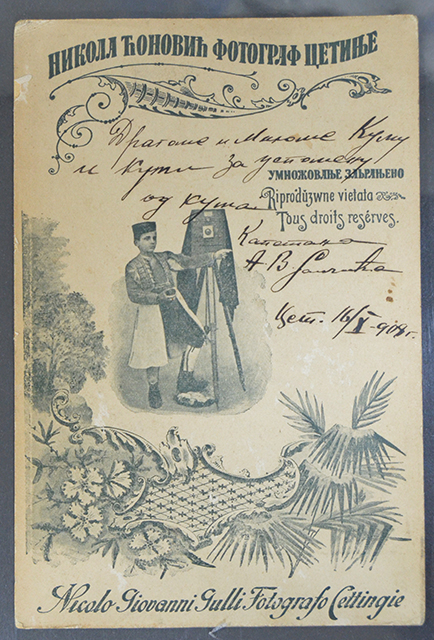 НИКОЛА ЋОНОВИЋ ФОТОГРАФ ЦЕТИЊЕ
Драгоме и Миломе Куму
и куми за успомену
УМНОЖОВАЊЕ ЗАБРАЊЕНО
од кума
Riprodüzwne vietata
Tous droits resérves.
Капетана
А В
Цет. 16/X 908 г.
Nicolo Giovanni Gulli Fotografo Cettingie